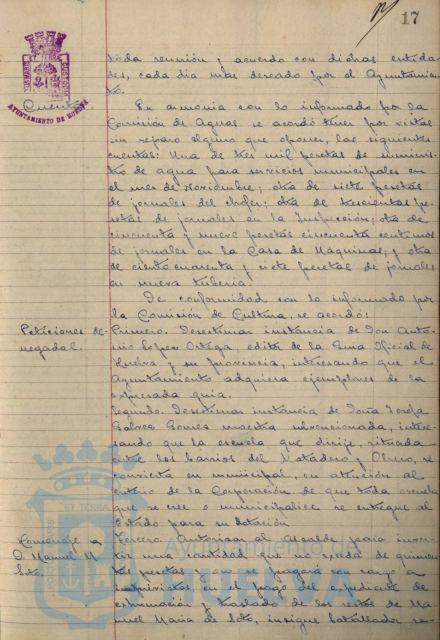 17
toda reunión y acuerdo con dichas entida-
des, cada dia mas deseado por el Ayuntamien-
to.
Cuentas
AYUNTAMIENTO DE HUELVA
En armonia con lo informado por la
Comisión de Aguas se acordó tener por vistas
sin reparo alguno que oponer, las siguientes
cuentas: Una de tres mil pesetas de suminis-
tro de agua para servicios municipales en
el mes de Noviembre; otra de siete pesetas
de jornales del chofer; otra de trescientas pe-
setas de jornales en la Inspección; otra de
cincuenta y nueve pesetas cincuenta centimos
de jornales en la Casa de Maquinas, y otra
de ciento cuarenta y siete pesetas de jornales
en nueva tuberia.
De conformidad con lo informado por
la Comisión de Cultura, se acordó:
Peticiones de-
negadas.
Primero. Desestimar instancia de Don Anto-
nio Lopez Ortega, editor de la Guia Oficial de
Huelva y su provincia, interesando que el
Ayuntamiento adquiera ejemplares de la
expresada guia.
Segundo. Desestimar instancia de Doña Josefa
Gomez maestra subvencionada, intere-
sando que la escuela que dirije, situada
entre los barrios del Matadero y, se
convierta en municipal, en atención al
criterio de la Corporación de que toda escuela
que se cree o municipalice se entregue al
Estado para su dotación
Homenaje a
D. Manuel M.
Soto.
Tercero. Autorizar al Alcalde para inver-
tir una cantidad que no exceda de quinien-
tas pesetas y que se pagará con cargo a
imprevistos, en el pago del expediente de
exhumación y traslado de los restos de Ma-
nuel Maria de Soto, insigne batallador re-
Ayuntamiento de
HUELVA